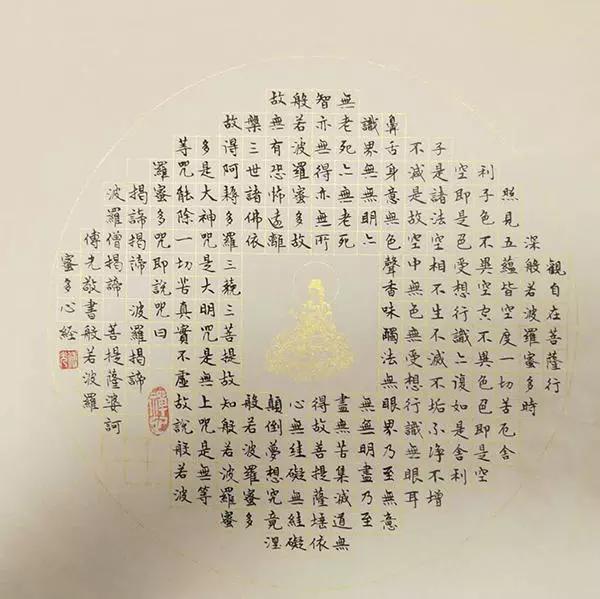 觀自在菩薩行
深般若波羅蜜多時
照見五蘊皆空度一切苦厄舍
利子色不異空空不異色色即是空
空即是色受想行識亦復如是舍利
子是諸法空相不生不滅不垢不淨不增
不減是故空中無色無受想行識無眼耳
鼻舌身意無色聲香味觸法無眼界乃至無意
識界無無明亦無無明盡乃至
無老死亦無老死盡無苦集滅道無
智亦無得亦無所得故菩提薩埵依
般若波羅蜜多故心無絓礙無絓礙
故無有恐怖遠離顛倒夢想究竟涅
槃三世諸佛依般若波羅蜜多
故得阿耨多羅三藐三菩提故知般若波羅蜜
多是大神咒是大明咒是無上咒是無等
等咒能除一切苦真實不虛故說般若波
羅蜜多咒即說咒曰
揭諦揭諦 波羅揭諦
波羅僧揭諦 菩提薩婆訶
敬書般若波羅
蜜多心經